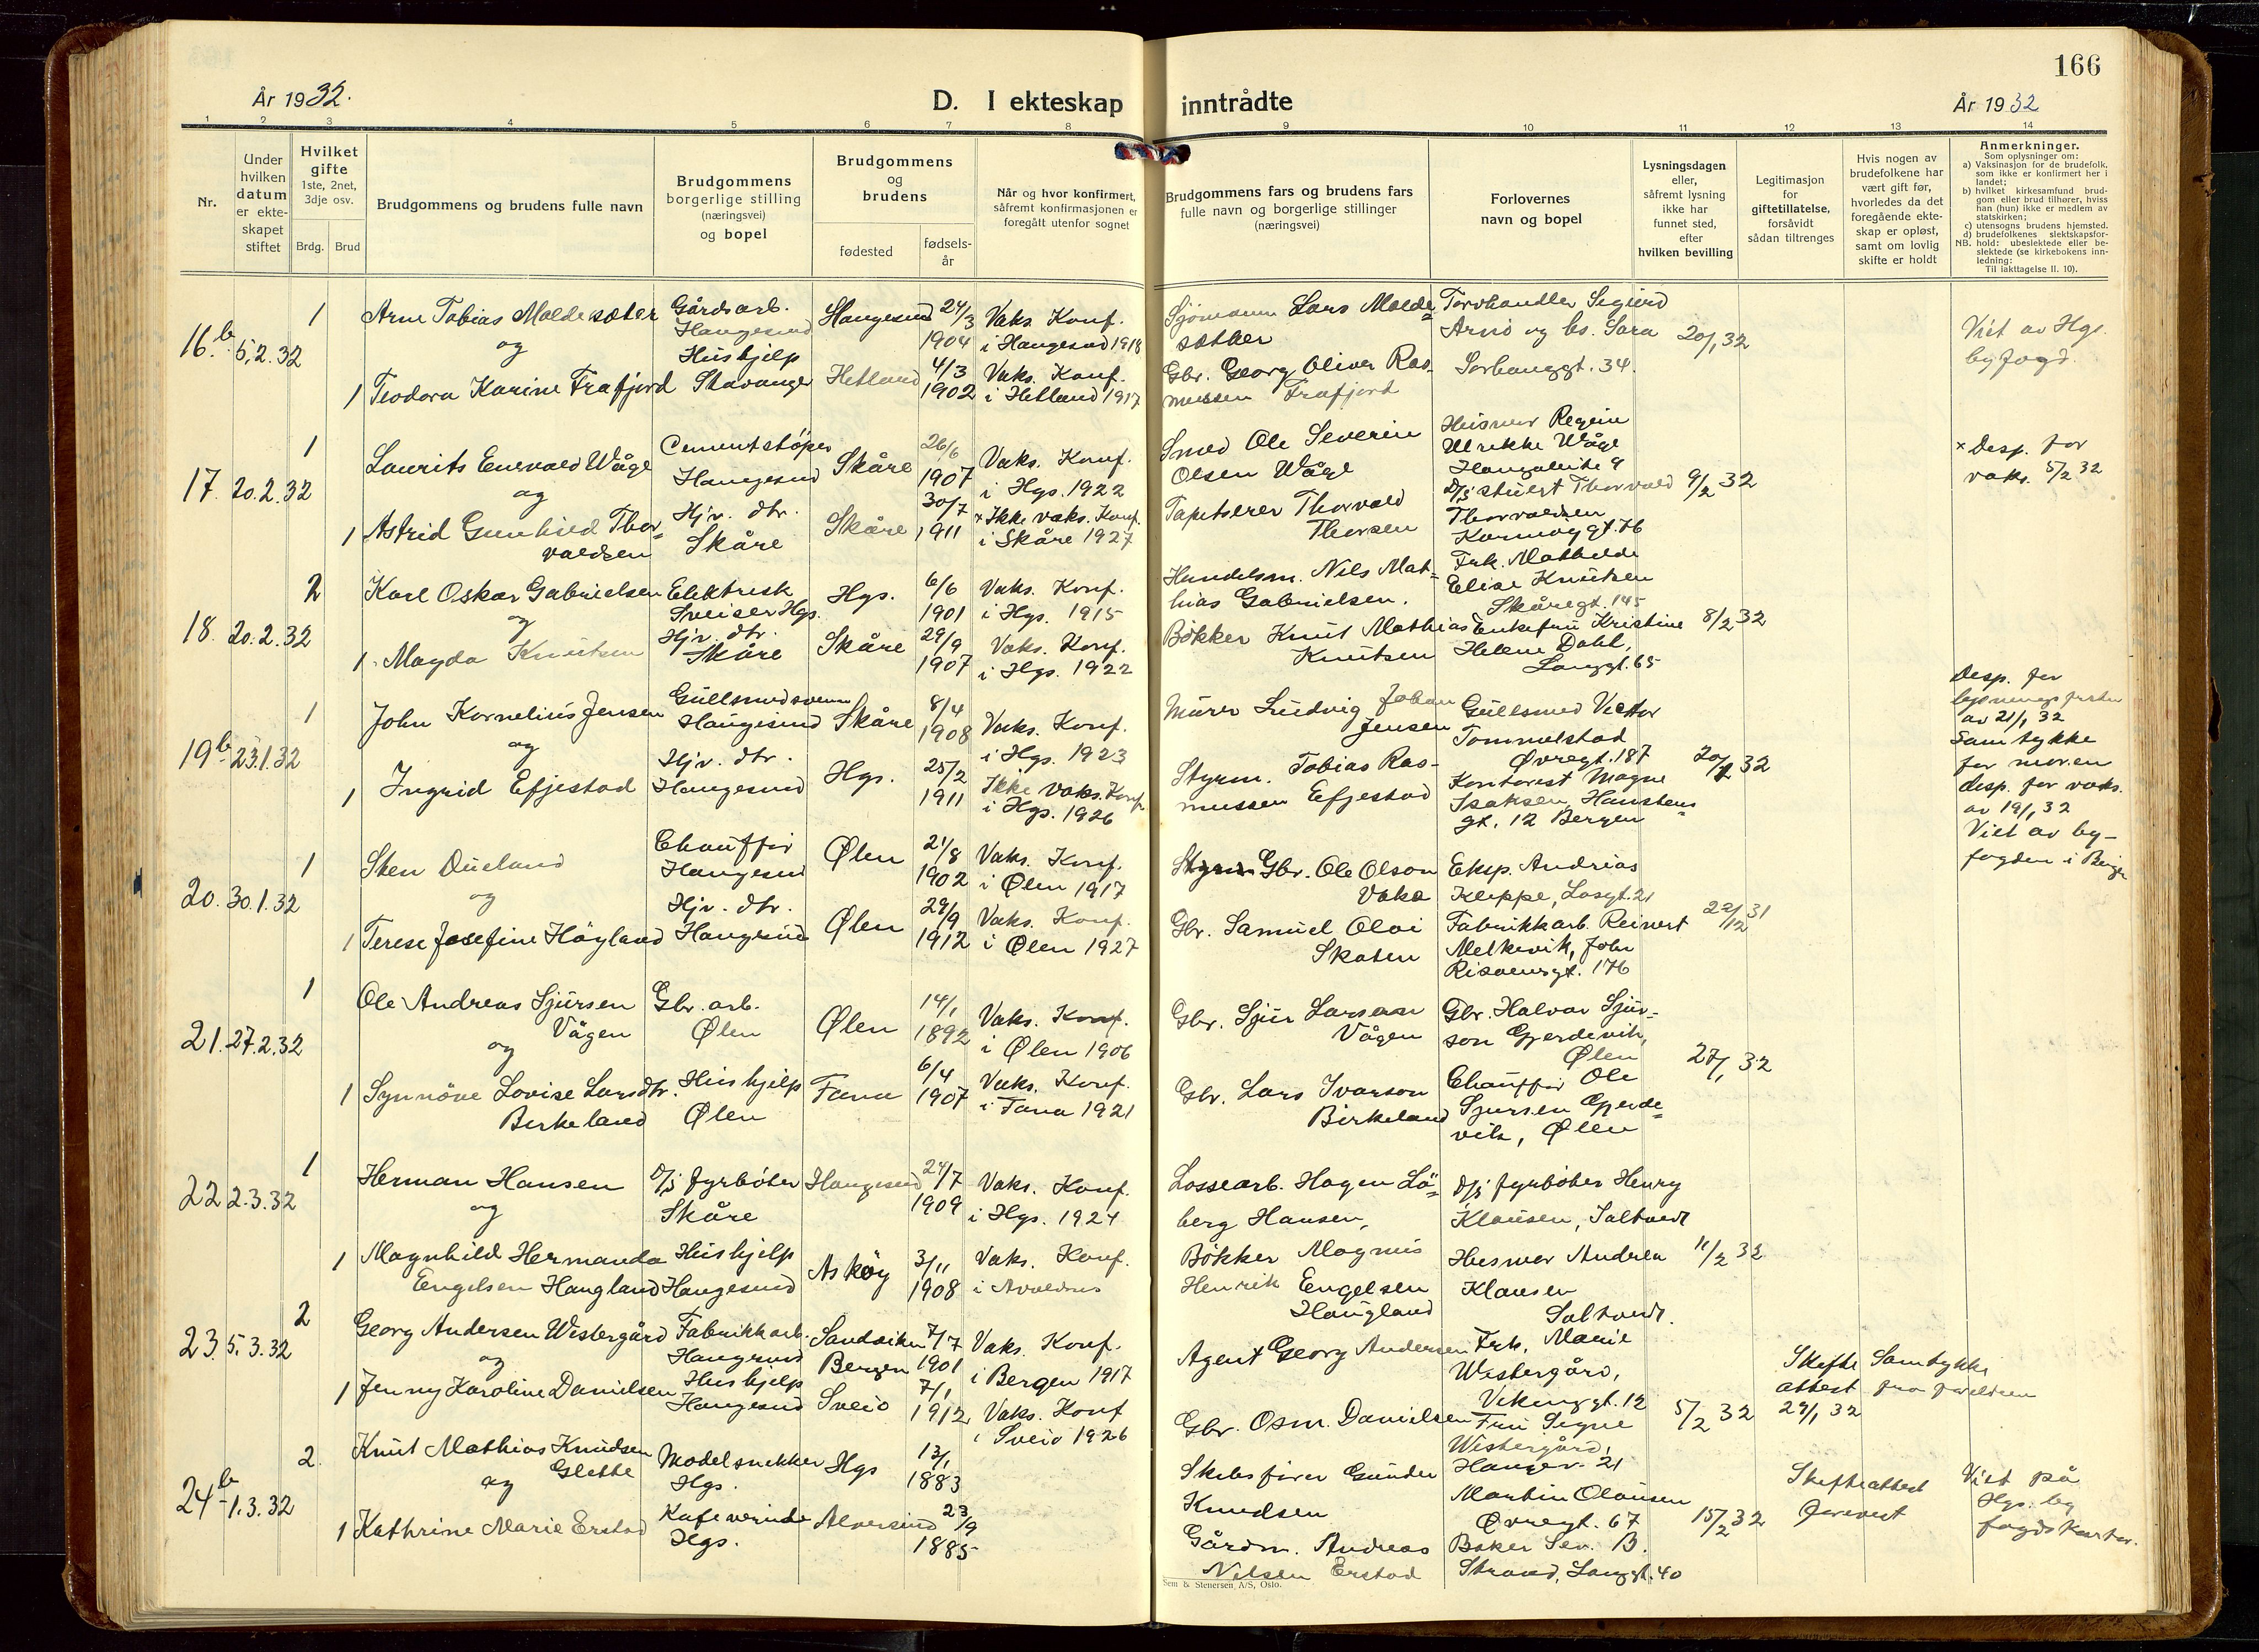 166
År 1932.
D. I ekteskap inntrådte
År 1932
1 2 3 4 5 6 7 8 9 10 11 12 13 14
Nr.
Under hvilken datum er ekte-skapet stiftet
Hvilket gifte
1ste, 2net, 3dje osv.
Brdg. Brud
Brudgommens og brudens fulle navn
Brudgommens borgerlige stilling (næringsvei) og bopel
Brudgommens og brudens
fødested
fødsels-år
Når og hvor konfirmert, såfremt konfirmasjonen er foregått utenfor sognet
Brudgommens fars og brudens fars fulle navn og borgerlige stillinger (næringsvei)
Forlovernes navn og bopel
Lysningsdagen eller, såfremt lysning ikke har funnet sted, efter hvilken bevilling
Legitimasjon for giftetillatelse, forsåvidt sådan tiltrenges
Hvis nogen av brudefolkene har vært gift før, hvorledes da det foregående ekte-skap er opløst, samt om lovlig skifte er holdt
Anmerkninger.
Som oplysninger om:
a) Vaksinasjon for de brudefolk, som ikke er konfirmert her i landet;
b) hvilket kirkesamfund brud-gom eller brud tilhører, hviss han (hun) ikke er medlem av statskirken;
c) utensogns brudens hjemsted.
d) brudefolkenes slektskapsfor-hold: ubeslektede eller be-slektede (se kirkebokens inn-ledning:
NB.
Til iakttagelse II. 10).
16.b 5.2.32
1 Arne Tobias Moldesæter
og
1 Teodora Karine Frafjord
Gårdsarb.
Haugesund
Hushjelp
Stavanger
Haugesund 24/3 1904
Hetland 4/3 1902
Vaks. Konf.
i Haugesund 1918
Vaks. Konf.
i Hetland 1917
Sjømann Lars Molde=
sæther
Gbr. Georg Oliver Ras-
mussen Frafjord
Torvhandler Sigurd
Arnø og hs. Sara
Sørhauggt. 34.
20/1 32
Viet av Hgs.
byfogd.
17. 20.2.32
1 Laurits Enevald Våge
og
1 Astrid Gunhild Thor=
valdsen
Cementstøper
Haugesund
Hjv. dtr.
Skåre
Skåre 26/6 1907
Skåre 30/7 1911
Vaks. Konf.
i Hgs. 1922
x Ikke vaks. Konf.
i Skåre 1927
Smed Ole Severin
Olsen Våge
Tapetserer Thorvald
Thorsen
Husmor Regine
Ulrikke Våge
Haugaleite 9
D/s stuert Thorvald
Thorvaldsen
Karmøygt. 76
9/2 32
x Desp. for
vaks. 5/2 32
18. 20.2.32
2 Karl Oskar Gabrielsen
og
1. Magda Knutsen
Elektrisk
Sveiser Hgs.
Hjv. dtr.
Skåre
Hgs. 6/6 1901
Skåre 29/9 1907
Vaks. Konf.
i Hgs. 1915
Vaks. Konf.
i Hgs. 1922
Handelsm. Nils Mat=
hias Gabrielsen.
Bøkker Knut Mathias
Knutsen
Frk. Mathilde
Elise Knutsen
Skåregt. 145
Enkefru Kristine
Helene Dahl,
Langgt. 65
8/2 32
19b 23.1.32
1 John Kornelius Jensen
og
1 Ingrid Efjestad
Gullsmedsvenn
Haugesund
Hjv. dtr.
Haugesund
Skåre 8/4 1908
Hgs. 25/2 1911
Vaks. Konf.
i Hgs. 1923
Ikke vaks. Konf.
i Hgs. 1926
Murer Ludvig Johan
Jensen
Styrm. Tobias Ras-
mussen Efjestad
Gullsmed Victor
Tommelstad
Øvregt. 187
Kontorist Magne
Isaksen, Hansteens=
gt. 12 Bergen
20/1 32
Desp. for
av 21/1 32
Samtykke
for moren
desp. for vaks.
av 19/1 32
Viet av by-
fogden i Bergen
20. 30.1.32
1 Sten Dueland
og
1 Terese Josefine Høyland
Chauffør
Haugesund
Hjv. dtr.
Haugesund
Ølen 21/8 1902
Ølen 29/9 1912
Vaks. Konf.
i Ølen 1917
Vaks. Konf.
i Ølen 1927
Gbr. Ole Olson
Vaka
Gbr. Samuel Olai
Skaten
Eksp. Andrias
Kleppe, Losgt. 21
Fabrikkarb. Reinert
Melkevik, John
Risøensgt. 176
22/12 31
21. 27.2.32
1 Ole Andreas Sjursen
Vågen
og
1 Synnøve Lovise Larsdtr.
Birkeland
Gbr. arb.
Ølen
Hushjelp
Ølen
Ølen 14/1 1892
Fana 6/4 1907
Vaks. Konf.
i Ølen 1906
Vaks. Konf.
i Fana 1921
Gbr. Sjur Larsen
Vågen
Gbr. Lars Ivarson
Birkeland
Gbr. Halvar Sjur-
son Gjerdevik,
Ølen
Chauffør Ole
Sjursen Gjerde=
vik, Ølen
27/1 32
22 2.3.32
1 Herman Hansen
og
1 Magnhild Hermanda
Engelsen Haugland
D/s fyrbøter
Skåre
Hushjelp
Haugesund
Haugesund 24/7 1909
Askøy 3/11 1908
Vaks. Konf.
i Hgs. 1924
Vaks. Konf.
i Avaldnes
Lossearb. Hagen Lö=
berg Hansen,
Bøkker Magnus
Henrik Engelsen
Haugland
D/s fyrbøter Henry
Klausen, Saltvedt
Husmor Andrea
Klausen
Saltvedt.
11/2 32
23. 5.3.32
2 Georg Andersen Westergård
og
1 Jenny Karoline Danielsen
Fabrikkarb.
Haugesund
Hushjelp
Haugesund
Sandviken
Bergen 7/7 1901
Sveio 7/1 1912
Vaks. Konf.
i Bergen 1917
Vaks. Konf
i Sveio 1926
Agent Georg Andersen
Gbr. Osm. Danielsen
Frk. Marie
Westergård,
Vikinggt. 12
Fru Signe
Westergård,
Haugev. 21
5/2 32
Skifte
attest
29/1 32
Samtykke
fra foreldrene
24b 1.3.32
2. Knut Mathias Knudsen
og Glette
1 Kathrine Marie Erstad
Modelsnekker
Hgs.
Kafevertinde
Hgs.
Hgs 13/1 1883
Alversund 23/9 1885
Skibsfører Gunder
Knudsen
Gårdm. Andreas
Nilsen Erstad
Martin Olausen
Øvregt. 67
Baker Sev. B.
Strand, Langgt. 40
15/2 32
Skifteattest
forevist
Viet på
Hgs. by
fogdskontor.
Sem & Stenersen A/S, Oslo.